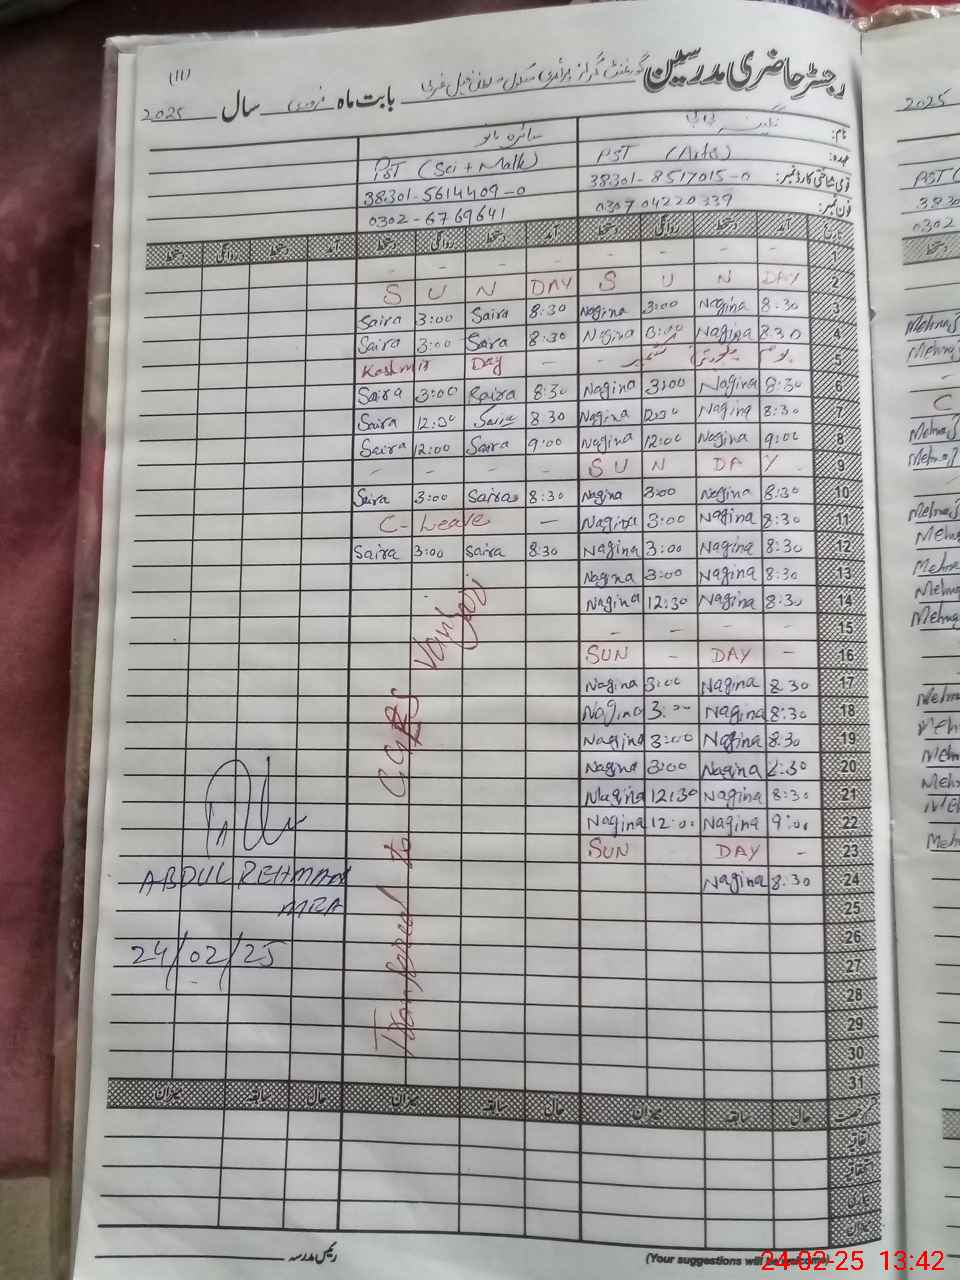 (11)
رجسٹر حاضری مدرسین گورنمنٹ گرلز پرائمری سکول
بابت ماہ فروری سال 2025
نام: نگینہ بی بی سائرہ بانو
عہدہ: PST (Arts) PST (Sci + Math)
قومی شناختی کارڈ نمبر: 38301-8517015-0 38301-5614409-0
فون نمبر: 030704220339 0302-6769641
تاریخ آمد دستخط روانگی دستخط آمد دستخط روانگی دستخط آمد دستخط روانگی دستخط
- - - - - - - 1
S U N DAY S U N DAY 2
Saira 3:00 Saira 8:30 Nagina 3:00 Nagina 8:30 3
Saira 3:00 Sara 8:30 Nagina 3:00 Nagina 8:30 4
Kashmir Day - - یوم یکجہتی کشمیر 5
Saira 3:00 Saira 8:30 Nagina 3:00 Nagina 8:30 6
Saira 12:30 Saira 8:30 Nagina 12:30 Nagina 8:30 7
Saira 12:00 Saira 9:00 Nagina 12:00 Nagina 9:00 8
- - - - S U N DA Y 9
Saira 3:00 Saira 8:30 Nagina 3:00 Nagina 8:30 10
C- Leave - Nagina 3:00 Nagina 8:30 11
Saira 3:00 Saira 8:30 Nagina 3:00 Nagina 8:30 12
Nagina 3:00 Nagina 8:30 13
Nagina 12:30 Nagina 8:30 14
- - - - 15
SUN - DAY - 16
Nagina 3:00 Nagina 8:30 17
Nagina 3:00 Nagina 8:30 18
Nagina 3:00 Nagina 8:30 19
Nagina 3:00 Nagina 8:30 20
Nagina 12:30 Nagina 8:30 21
Nagina 12:00 Nagina 9:00 22
SUN DAY - 23
Nagina 8:30 24
25
26
27
28
29
30
31
Transfered to GGPS
ABDUL REHMAN
MEA
24/02/25
حال سابقہ میزان حال سابقہ میزان حال سابقہ میزان
اتفاقیہ
میزان
رئیس مدرسہ
(Your suggestions will be welcome)
2025
PST (
3830
0302
دستخط
Mehna
Mehna
-
C
Mehna
Mehna
Mehna
Mehn
Mehna
Mehna
Mehna
Mehna
Meh
Mehn
Mehn
Meh
Meh
24-02-25 13:42